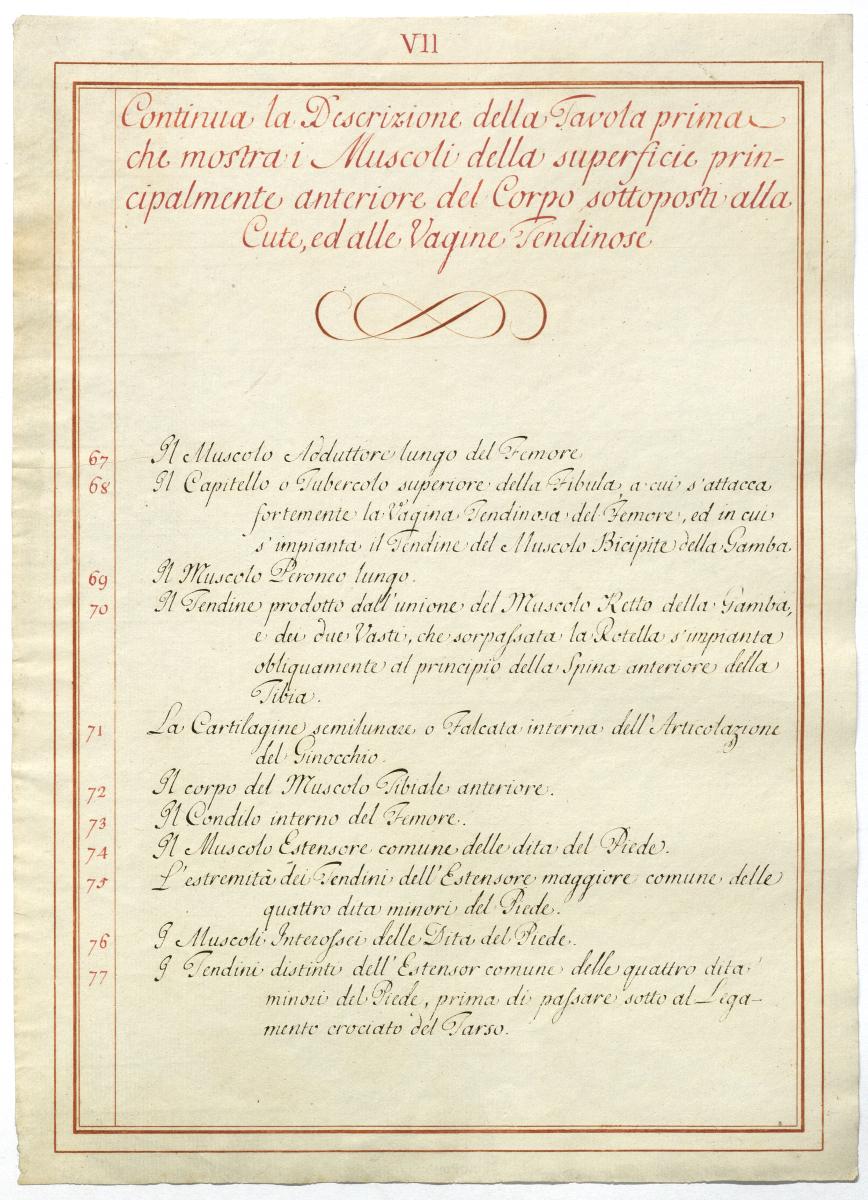 VII
Continua la Descrizione della Tavola prima
che mostra i Muscoli della superficie prin-
cipalmente anteriore del Corpo sottoposti alla
Cute, ed alle Vagine Tendinose
67 Il Muscolo Adduttore lungo del Femore
68 Il Capitello o Tubercolo superiore della Fibula, a cui s'attacca
fortemente la Vagina Tendinosa del Femore, ed in cui
s'impianta il Tendine del Muscolo Bicipite della Gamba
69 Il Muscolo Peroneo lungo.
70 Il Tendine prodotto dall'unione del Muscolo Retto della Gamba,
e dei due Vasti, che sorpassata la Rotella s'impianta
obliquamente al principio della Spina anteriore della
Tibia.
71 La Cartilagine semilunare o Falcata interna dell'Articolazione
del Ginocchio.
72 Il corpo del Muscolo Tibiale anteriore.
73 Il Condilo interno del Femore.
74 Il Muscolo Estensore comune delle dita del Piede.
75 L'estremità dei Tendini dell'Estensore maggiore comune delle
quattro dita minori del Piede.
76 I Muscoli Interossei delle Dita del Piede.
77 I Tendini distinti dell'Estensor comune delle quattro dita
minori del Piede, prima di passare sotto al Lega-
mento crociato del Tarso.